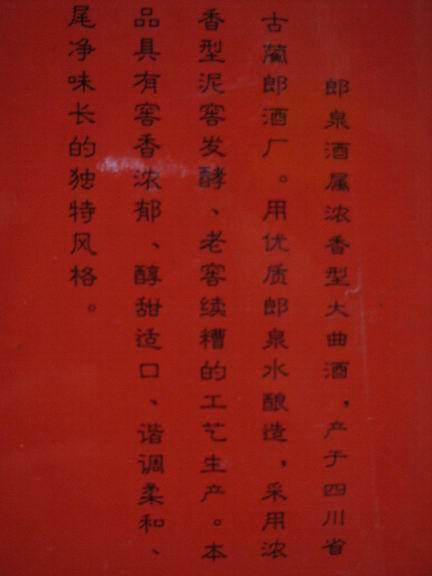 郎泉酒属浓香型大曲酒，产于四川省
古蔺郎酒厂。用优质郎泉水酿造，采用浓
香型泥窖发酵、老窖续糟的工艺生产。本
品具有窖香浓郁、醇甜适口、谐调柔和、
尾净味长的独特风格。